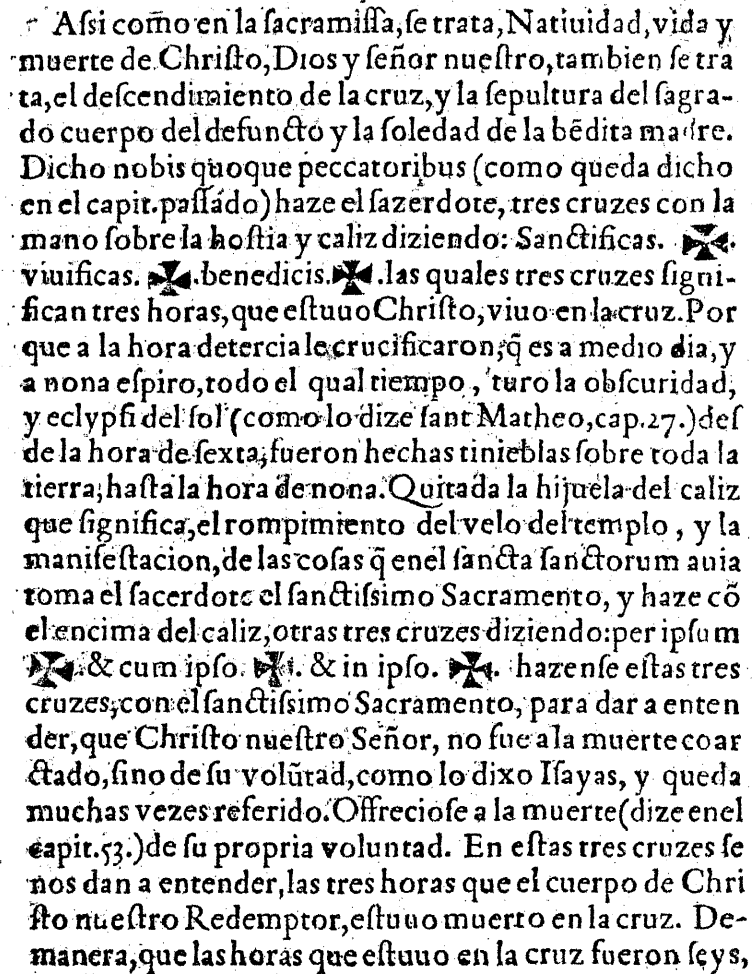 Aſsi com̃o en la ſacramiſſa, ſe trata, Natiuidad, vida y
muerte de Chriſto, Dios y ſeñor nueſtro, tambien ſe tra
ta, el deſcendimiento de la cruz, y la ſepultura del ſagra-
do cuerpo del defuncto y la ſoledad de la bẽdita madre.
Dicho nobis quoque peccatoribus (como queda dicho
en el capit. paſſádo) haze el ſazerdote, tres cruzes con la
mano ſobre la hoſtia y caliz diziendo: Sanctificas. ✠.
viuificas. ✠. benedicis. ✠. las quales tres cruzes ſigni-
fican tres horas, que eſtuuo Chriſto, viuo en la cruz. Por
que a la hora de tercia le crucificaron, q̃ es a medio dia, y
a nona eſpiro, todo el qual tiempo, turo la obſcuridad,
y eclypſi del ſol (como lo dize ſant Matheo, cap. 27.) deſ
de la hora de ſexta, fueron hechas tinieblas ſobre toda la
tierra, haſta la hora de nona. Quitada la hijuela del caliz
que ſignifica, el rompimiento del velo del templo, y la
manifeſtacion, de las coſas q̃ enel ſancta ſanctorum auia
toma el ſacerdote el ſanctiſsimo Sacramento, y haze cõ
el encima del caliz, otras tres cruzes diziendo: per ipſum
✠. & cum ipſo. ✠. & in ipſo. ✠. hazenſe eſtas tres
cruzes, con el ſanctiſsimo Sacramento, para dar a enten
der, que Chriſto nueſtro Señor, no fue a la muerte coar
ctado, ſino de ſu volũtad, como lo dixo Iſayas, y queda
muchas vezes referido. Offrecioſe a la muerte (dize enel
capit. 53.) de ſu propria voluntad. En eſtas tres cruzes ſe
nos dan a entender, las tres horas que el cuerpo de Chri
ſto nueſtro Redemptor, eſtuuo muerto en la cruz. De-
manera, que las horas que eſtuuo en la cruz fueron ſeys,